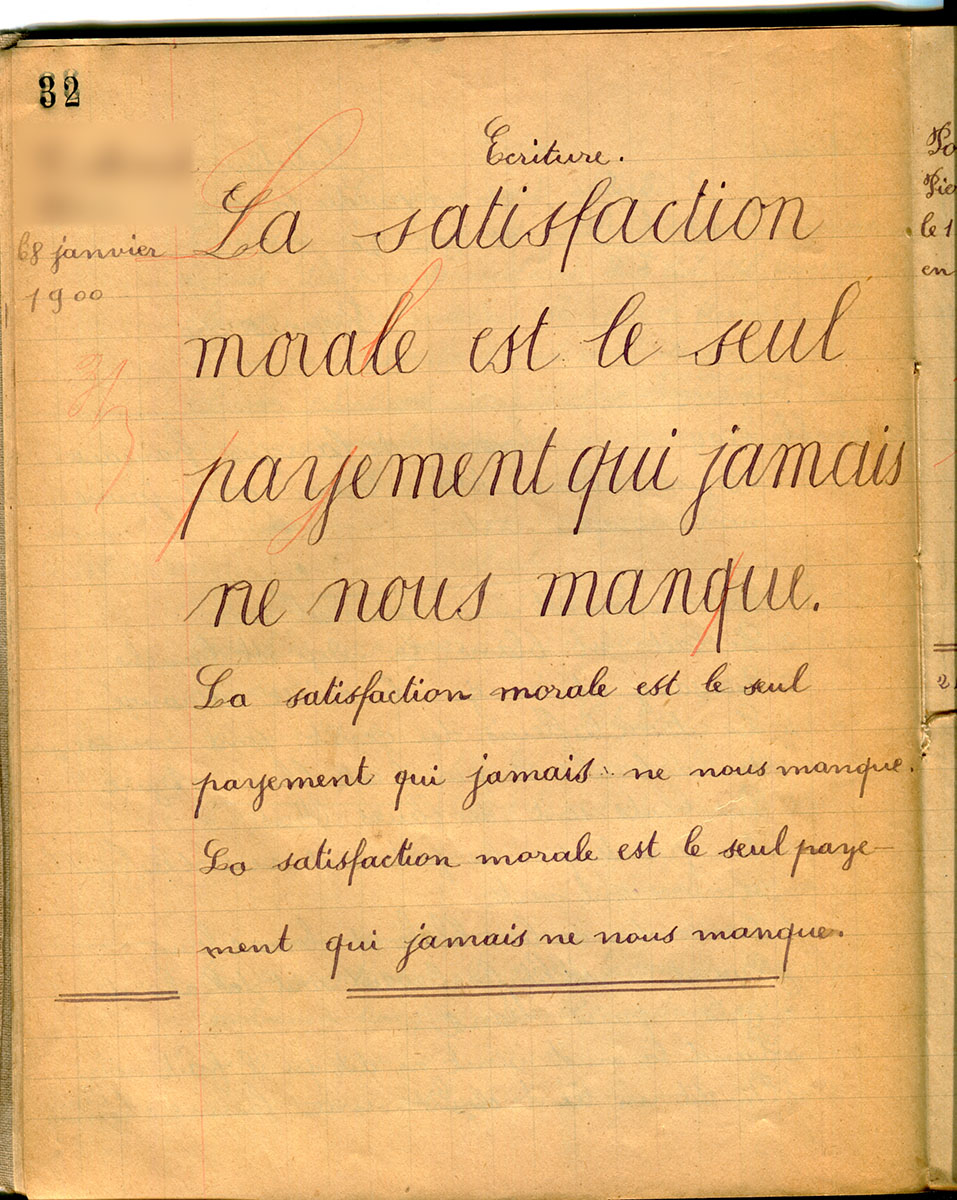 32
Ecriture.
La satisfaction
janvier
1900
morale est le seul
payement qui jamais
ne nous manque.
La satisfaction morale est le seul
payement qui jamais ne nous manque.
La satisfaction morale est le seul paye-
ment qui jamais ne nous manque.
le 1
en
2